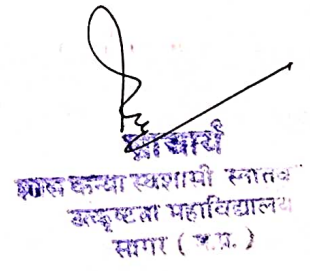 प्राचार्य
शास० कन्या स्वशासी स्नातको
उत्कृष्टता महाविद्यालय
सागर ( म.प्र. )